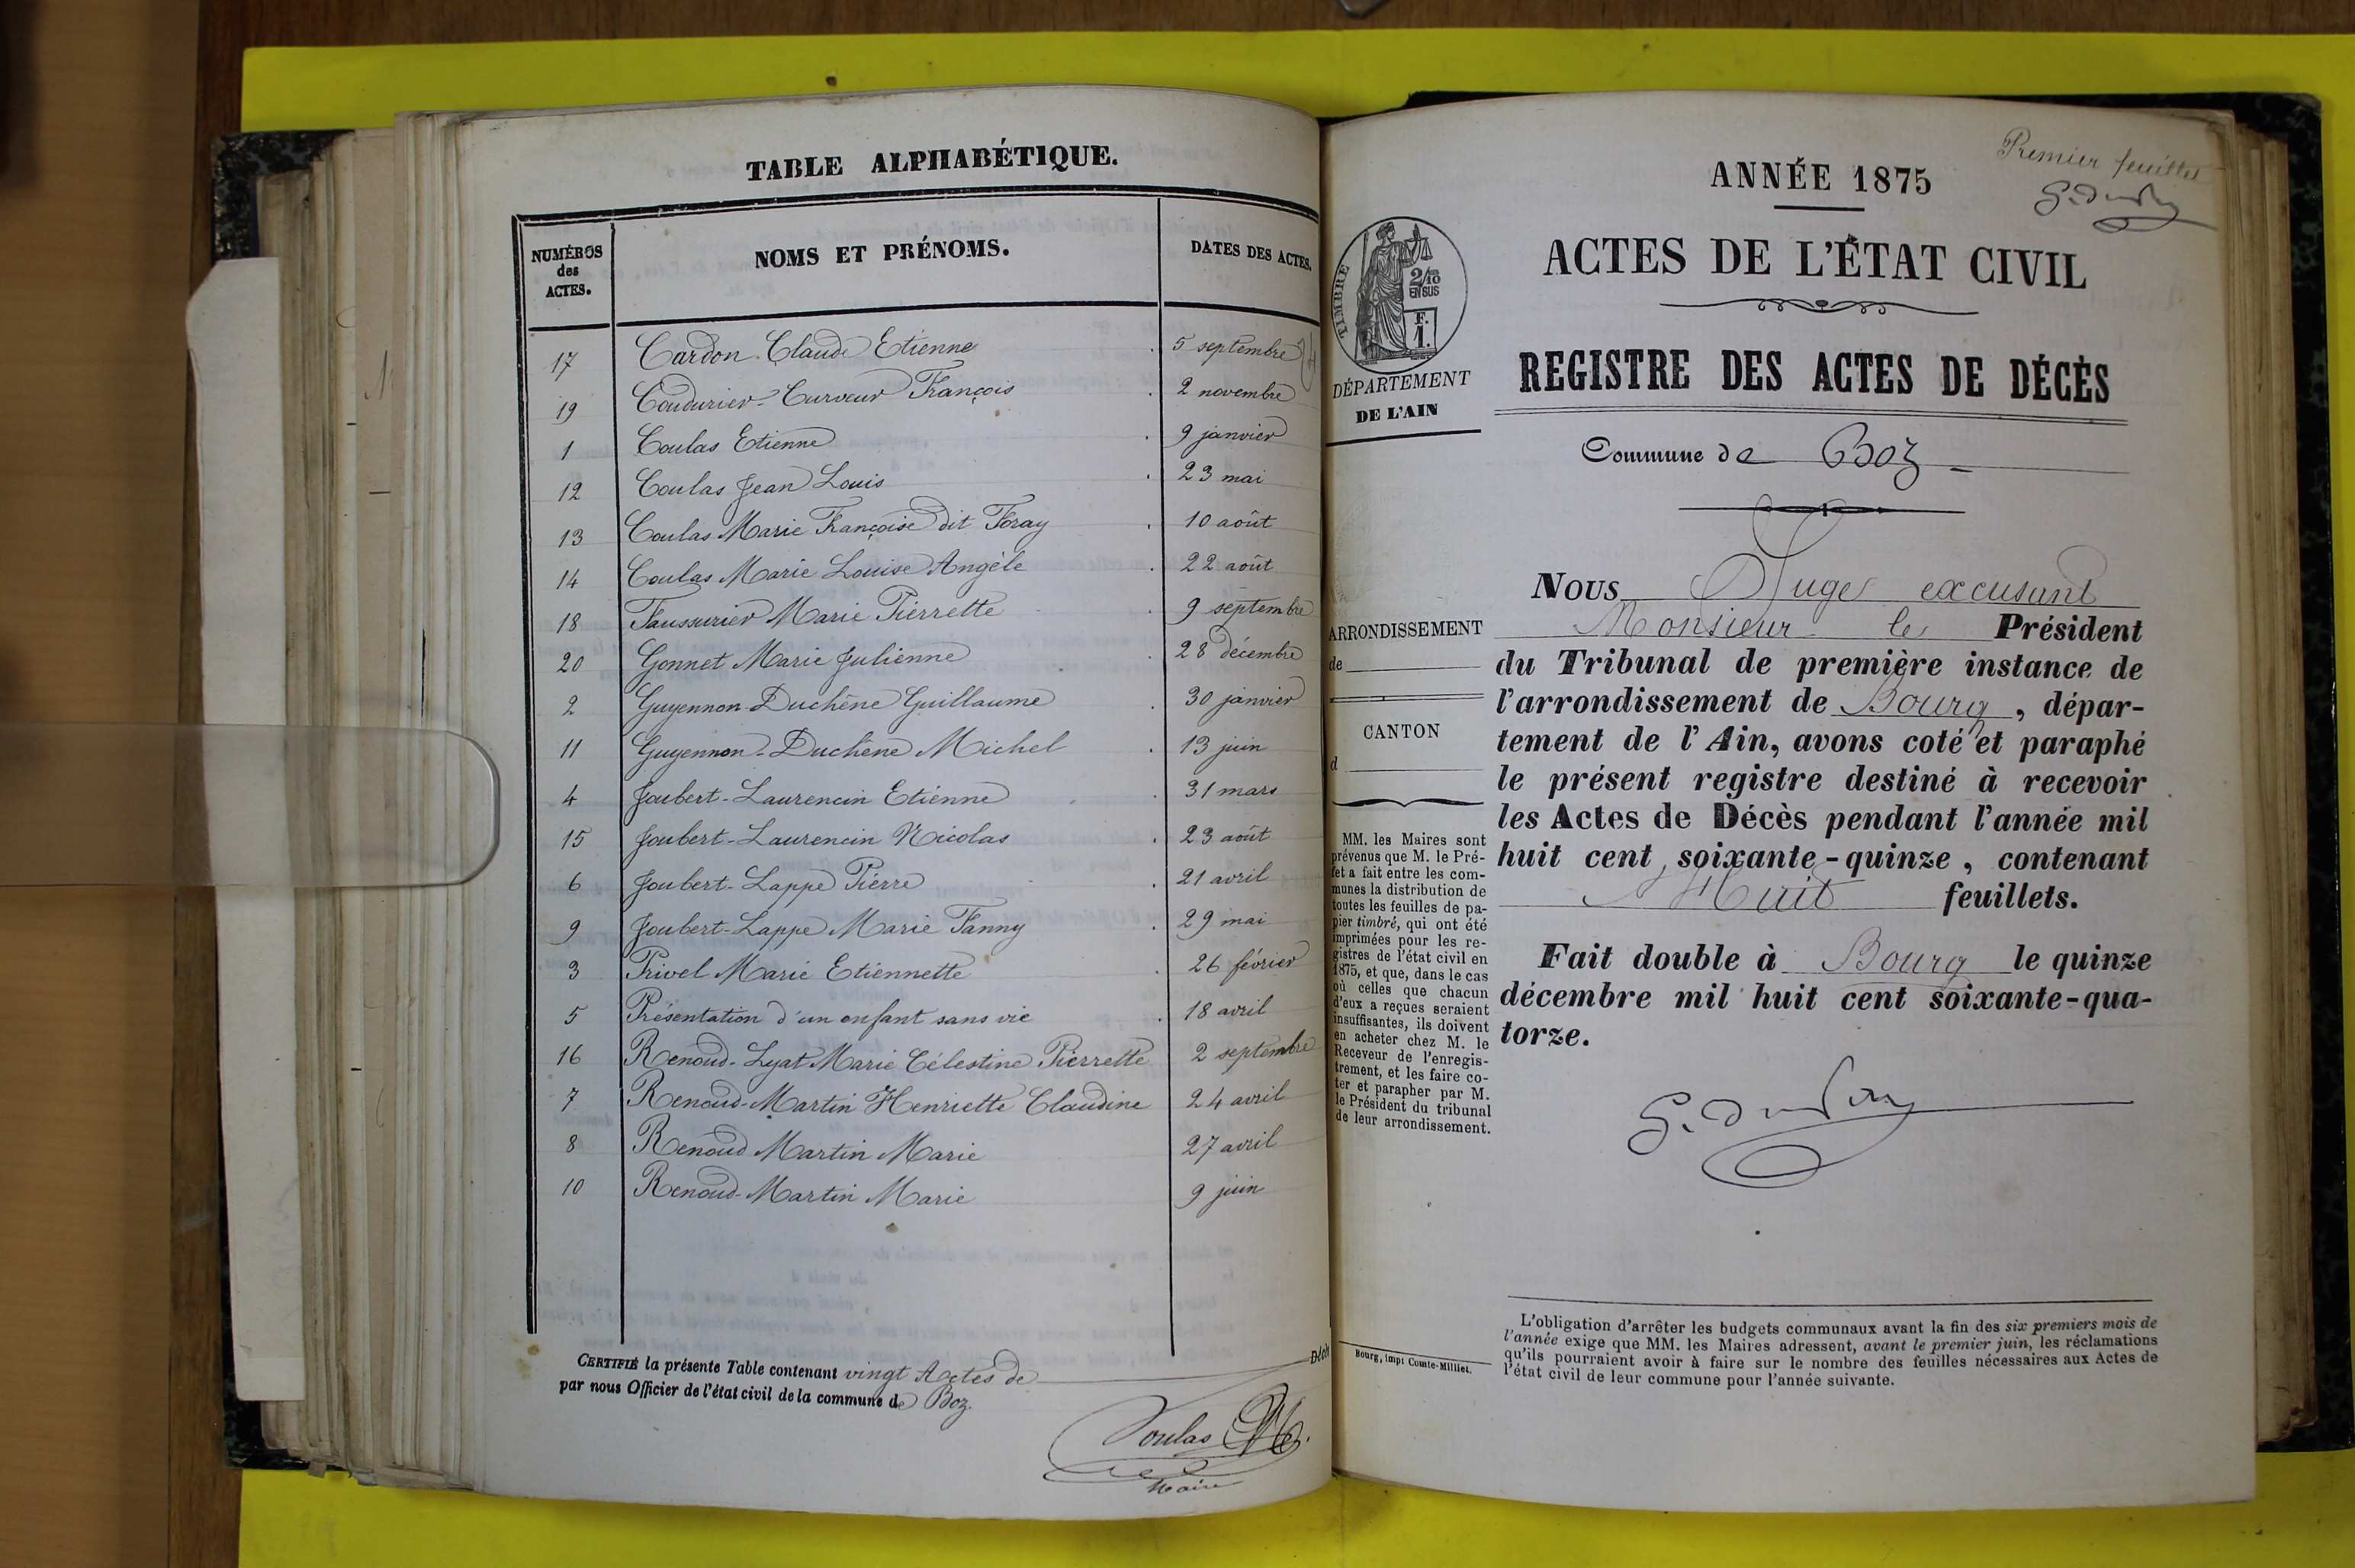 TABLE ALPHABÉTIQUE.
NUMÉROS des ACTES. NOMS ET PRÉNOMS. DATES DES ACTES.
17 Cardon Claude Etienne 5 septembre
19 Coudurier-Curveur François 2 novembre
1 Coulas Etienne 9 janvier
12 Coulas Jean Louis 23 mai
13 Coulas Marie Françoise dit Foray 10 août
14 Coulas Marie Louise Angèle 22 août
18 Faussurier Marie Pierrette 9 septembre
20 Gonnet Marie Julienne 28 décembre
2 Guyennon-Duchêne Guillaume 30 janvier
11 Guyennon-Duchêne Michel 13 juin
4 Joubert-Laurencin Etienne 31 mars
15 Joubert-Laurencin Nicolas 23 août
6 Joubert-Lappe Pierre 21 avril
9 Joubert-Lappe Marie Fanny 29 mai
3 Privel Marie Etiennette 26 février
5 Présentation d'un enfant sans vie 18 avril
16 Renoud-Lyat Marie Célestine Pierrette 2 septembre
7 Renoud-Martin Henriette Claudine 24 avril
8 Renoud Martin Marie 27 avril
10 Renoud-Martin Marie 9 juin
CERTIFIÉ la présente Table contenant vingt Actes de Décès
par nous Officier de l'état civil de la commune de Boz.
Coulas
Maire
Premier feuillet
ANNÉE 1875
ACTES DE L'ÉTAT CIVIL
TIMBRE
2/10
EN SUS
F.
1.
DÉPARTEMENT
DE L'AIN
REGISTRE DES ACTES DE DÉCÈS
Commune de Boz
ARRONDISSEMENT
de
CANTON
d
MM. les Maires sont
prévenus que M. le Pré-
fet a fait entre les com-
munes la distribution de
toutes les feuilles de pa-
pier timbré, qui ont été
imprimées pour les re-
gistres de l'état civil en
1875, et que, dans le cas
où celles que chacun
d'eux a reçues seraient
insuffisantes, ils doivent
en acheter chez M. le
Receveur de l'enregis-
trement, et les faire co-
ter et parapher par M.
le Président du tribunal
de leur arrondissement.
Bourg, impr Comte-Milliet.
NOUS Juge excusant
Monsieur le Président
du Tribunal de première instance de
l'arrondissement de Bourg, dépar-
tement de l'Ain, avons coté et paraphé
le présent registre destiné à recevoir
les Actes de Décès pendant l'année mil
huit cent soixante-quinze, contenant
Huit feuillets.
Fait double à Bourg le quinze
décembre mil huit cent soixante-qua-
torze.
L'obligation d'arrêter les budgets communaux avant la fin des six premiers mois de
l'année exige que MM. les Maires adressent, avant le premier juin, les réclamations
qu'ils pourraient avoir à faire sur le nombre des feuilles nécessaires aux Actes de
l'état civil de leur commune pour l'année suivante.